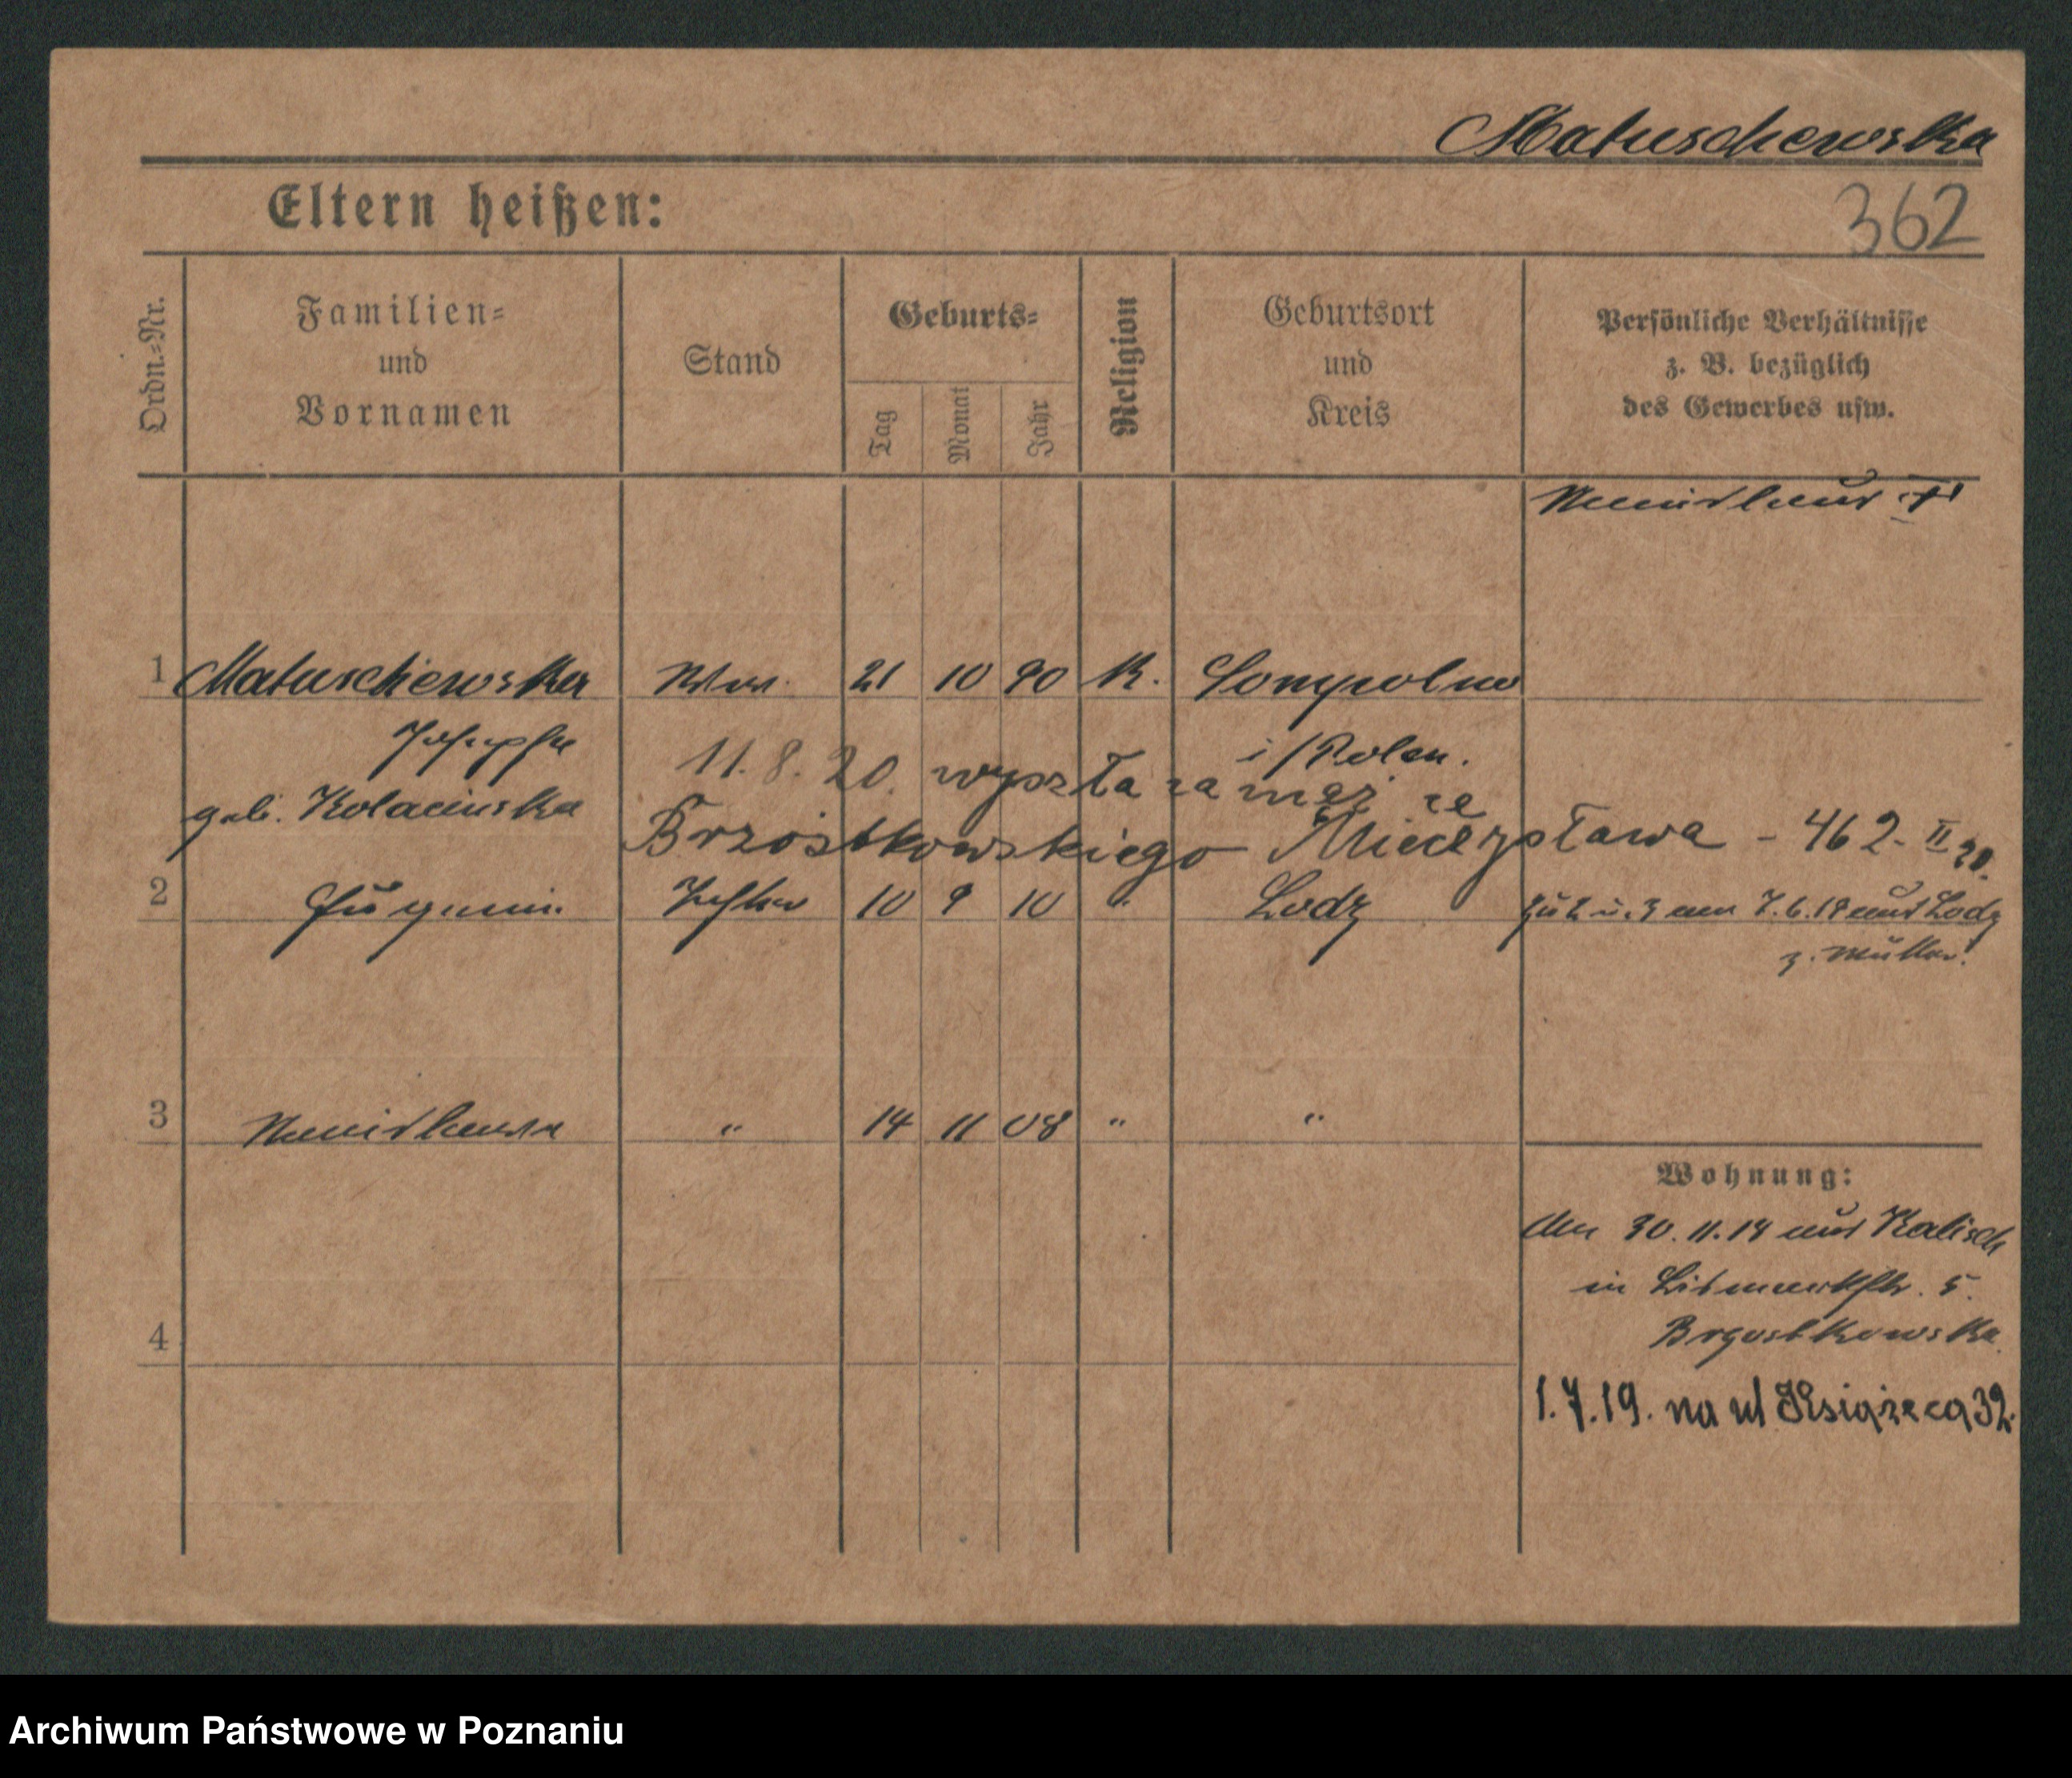 Matuschewska
Eltern heißen:
362
Ordn.-Nr.
Familien-
und
Vornamen
Stand
Geburts-
Tag
Monat
Jahr
Religion
Geburtsort
und
Kreis
Persönliche Verhältnisse
z. B. bezüglich
des Gewerbes usw.
1 Matuschewska Ww. 21 10 90 K. Sompolno
Josepha i/Polen.
geb. Kolacinska
11.8.20. wyszła za mąż za
Brzostkowskiego Mieczysława - 462. II
2 Eugenie Tochter 10 9 10 " Lodz
zu 2 u. 3 am 7.6.19 aus Lodz
z. Mutter.
3 " 14 11 08 " "
4
Wohnung:
Am 30.11.18 aus Kalisch
in Bismarckstr. 5.
Brzostkowska
1.7.19. na ul Książęcą 32.
Archiwum Państwowe w Poznaniu